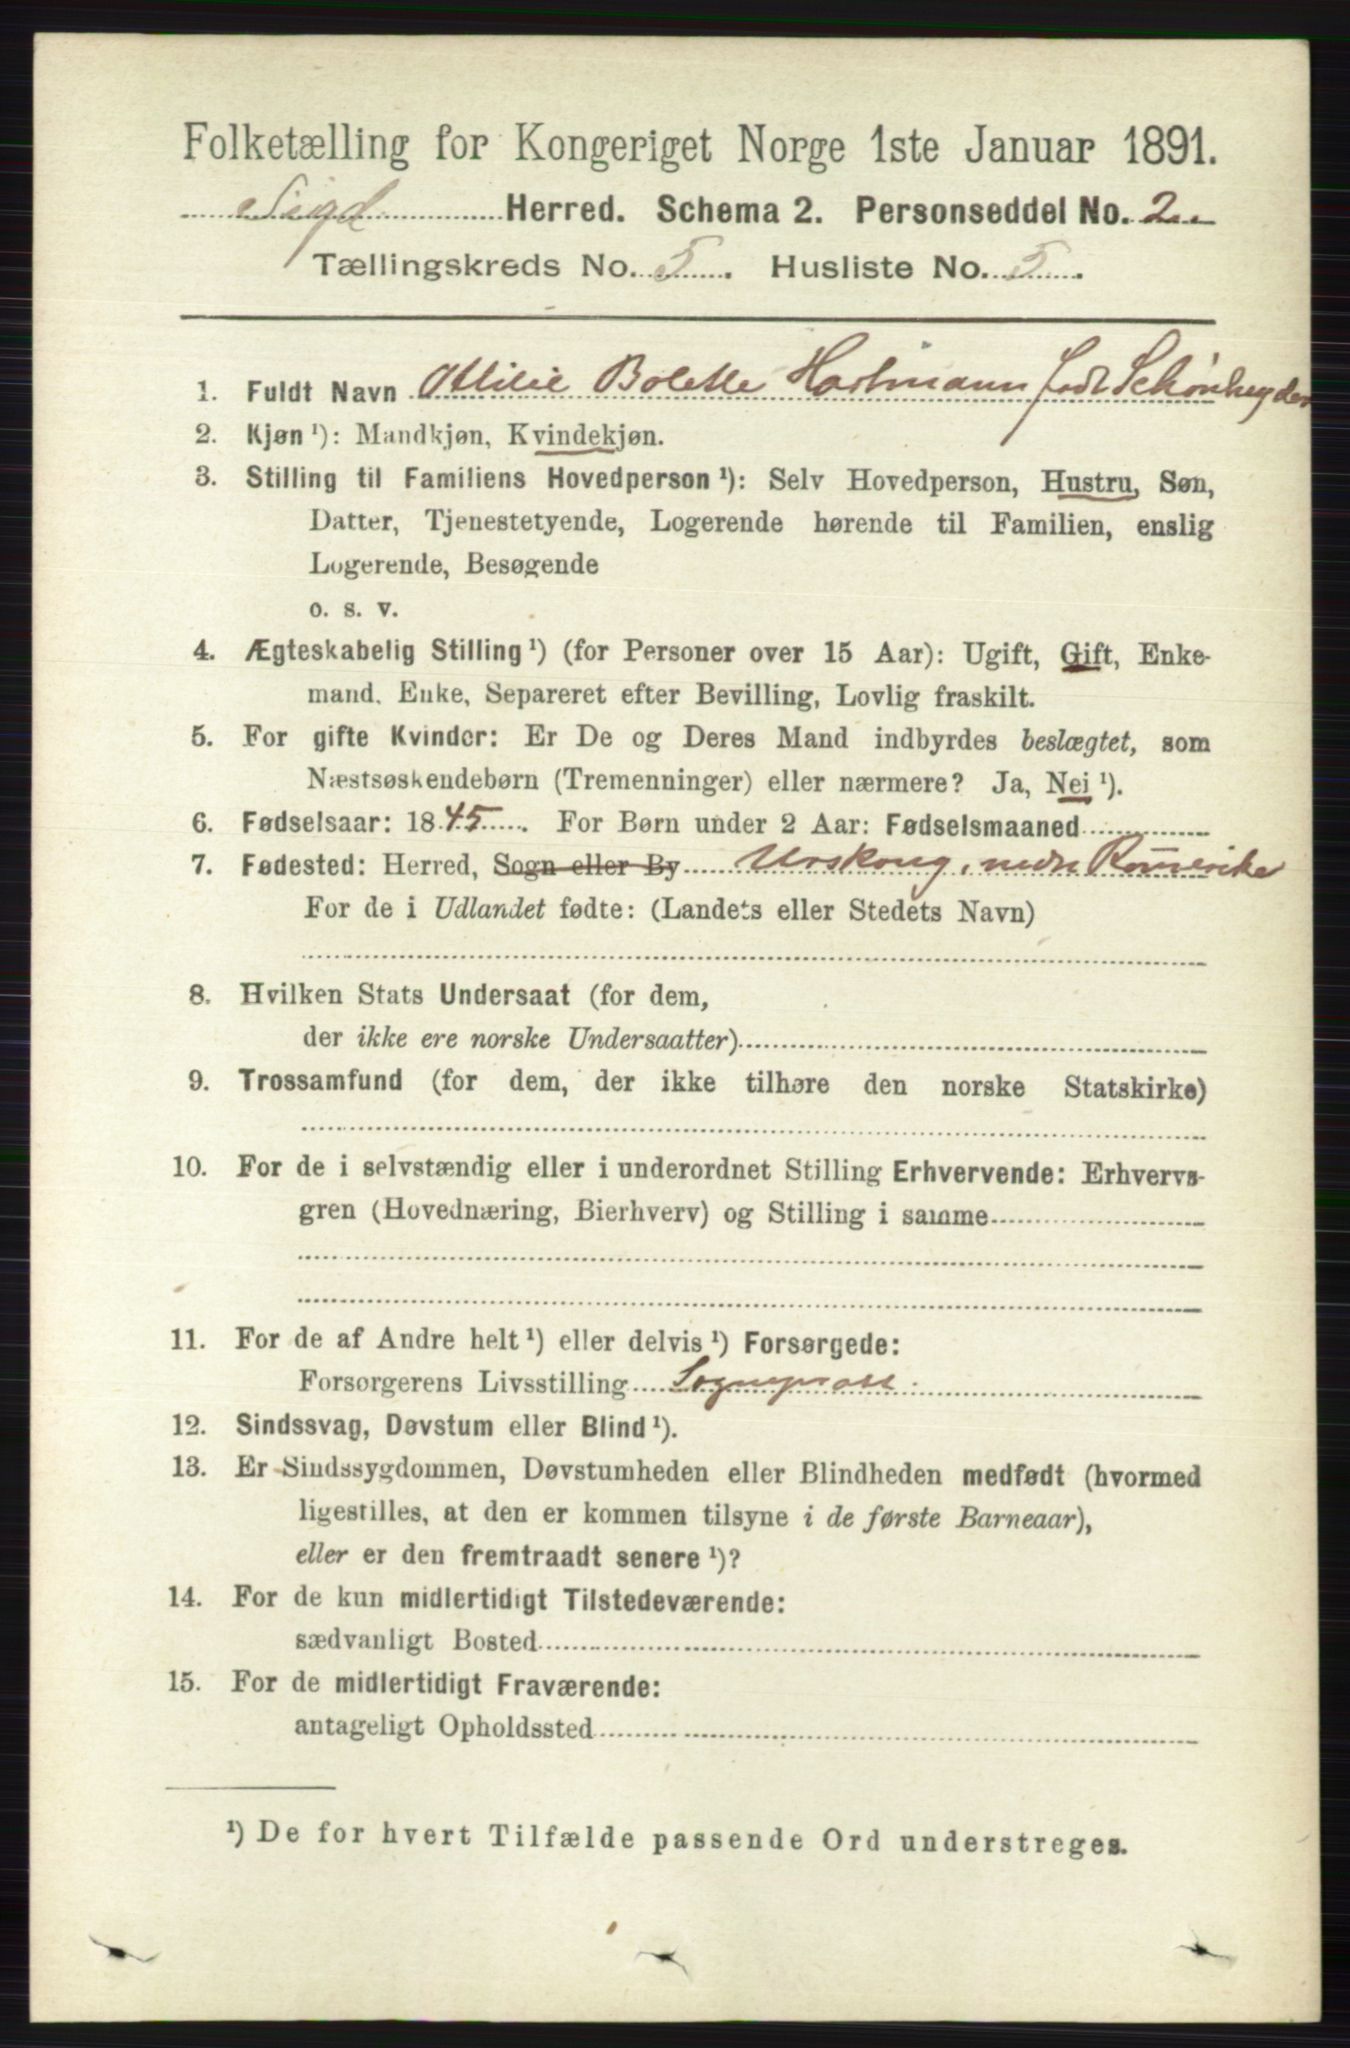 Folketælling for Kongeriget Norge 1ste Januar 1891.
Sigd Herred. Schema 2. Personseddel No. 2
Tællingskreds No. 5. Husliste No. 5.
1. Fuldt Navn Ottilie Bolette Hartmann født Schønheyder
2. Kjøn ¹): Mandkjøn, Kvindekjøn.
3. Stilling til Familiens Hovedperson ¹): Selv Hovedperson, Hustru, Søn,
Datter, Tjenestetyende, Logerende hørende til Familien, enslig
Logerende, Besøgende
o. s. v.
4. Ægteskabelig Stilling ¹) (for Personer over 15 Aar): Ugift, Gift, Enke-
mand, Enke, Separeret efter Bevilling, Lovlig fraskilt.
5. For gifte Kvinder: Er De og Deres Mand indbyrdes beslægtet, som
Næstsøskendebørn (Tremenninger) eller nærmere? Ja, Nei ¹).
6. Fødselsaar: 1845. For Børn under 2 Aar: Fødselsmaaned
7. Fødested: Herred, Sogn eller By Urskoug, nedre Romerike
For de i Udlandet fødte: (Landets eller Stedets Navn)
8. Hvilken Stats Undersaat (for dem,
der ikke ere norske Undersaatter)
9. Trossamfund (for dem, der ikke tilhøre den norske Statskirke)
10. For de i selvstændig eller i underordnet Stilling Erhvervende: Erhvervs-
gren (Hovednæring, Bierhverv) og Stilling i samme
11. For de af Andre helt ¹) eller delvis ¹) Forsørgede:
Forsørgerens Livsstilling Sogneprest
12. Sindssvag, Døvstum eller Blind ¹).
13. Er Sindssygdommen, Døvstumheden eller Blindheden medfødt (hvormed
ligestilles, at den er kommen tilsyne i de første Barneaar),
eller er den fremtraadt senere ¹)?
14. For de kun midlertidigt Tilstedeværende:
sædvanligt Bosted
15. For de midlertidigt Fraværende:
antageligt Opholdssted
¹) De for hvert Tilfælde passende Ord understreges.